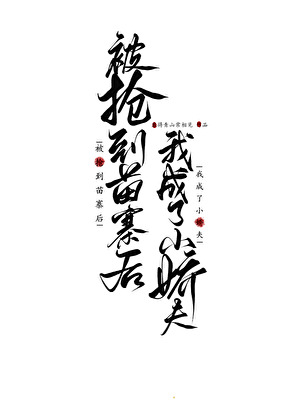 被抢到苗寨后
|被抢到苗寨后|
得青山常相见
品
我成了小娇夫
|我成了小娇夫|